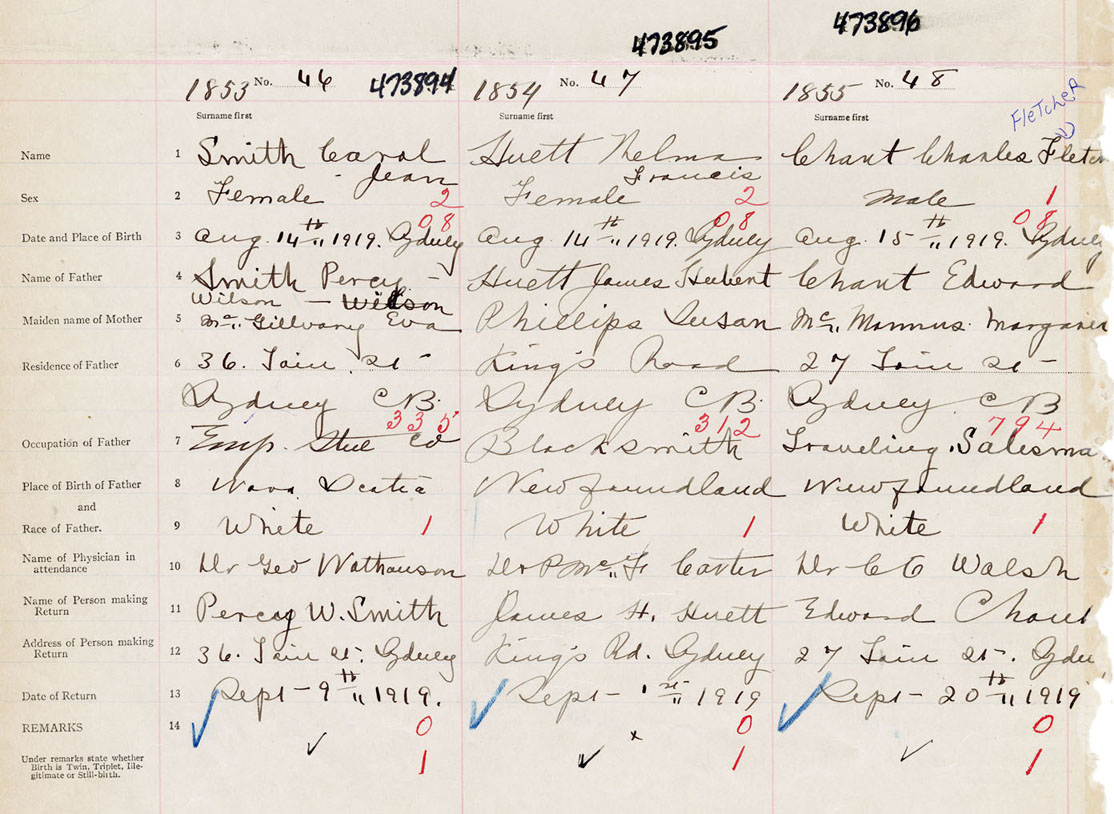 473896
473895
1853 No. 46 473894 1854 No. 47 1855 No. 48
Fletcher
Surname first Surname first Surname first
Name 1 Smith Carol Huett Thelma Chant Charles Fletch
Jean Francis
Sex 2 Female 2 Female 2 Male 1
08 08 08
Date and Place of Birth 3 Aug. 14th 1919. Sydney Aug. 14th 1919. Sydney Aug. 15th 1919. Sydney
Name of Father 4 Smith Percy Huett James Hubert Chant Edward
Wilson — Wilson
Maiden name of Mother 5 Mc. Gillvary Eva Phillips Susan Mc. Mannus Margaret
Residence of Father 6 36. St King's Road 27 St
Sydney C B. Sydney C B. Sydney C B
335 312 794
Occupation of Father 7 Emp. Steel Co Blacksmith Traveling Salesma
Place of Birth of Father 8 Nova Scotia Newfoundland Newfoundland
and
Race of Father. 9 White 1 White 1 White 1
Name of Physician in
attendance 10 Dr Geo Dr Mc. Carter Dr Walsh
Name of Person making
Return 11 Percy W. Smith James H. Huett Edward Chant
Address of Person making
Return 12 36. St. Sydney King's Rd. Sydney 27 St. Sydne
Date of Return 13 Sept – 9th 1919. Sept – 1st 1919 Sept – 20th 1919
REMARKS 14 0 0 0
Under remarks state whether
Birth is Twin, Triplet, Ille-
gitimate or Still-birth. 1 x 1 1